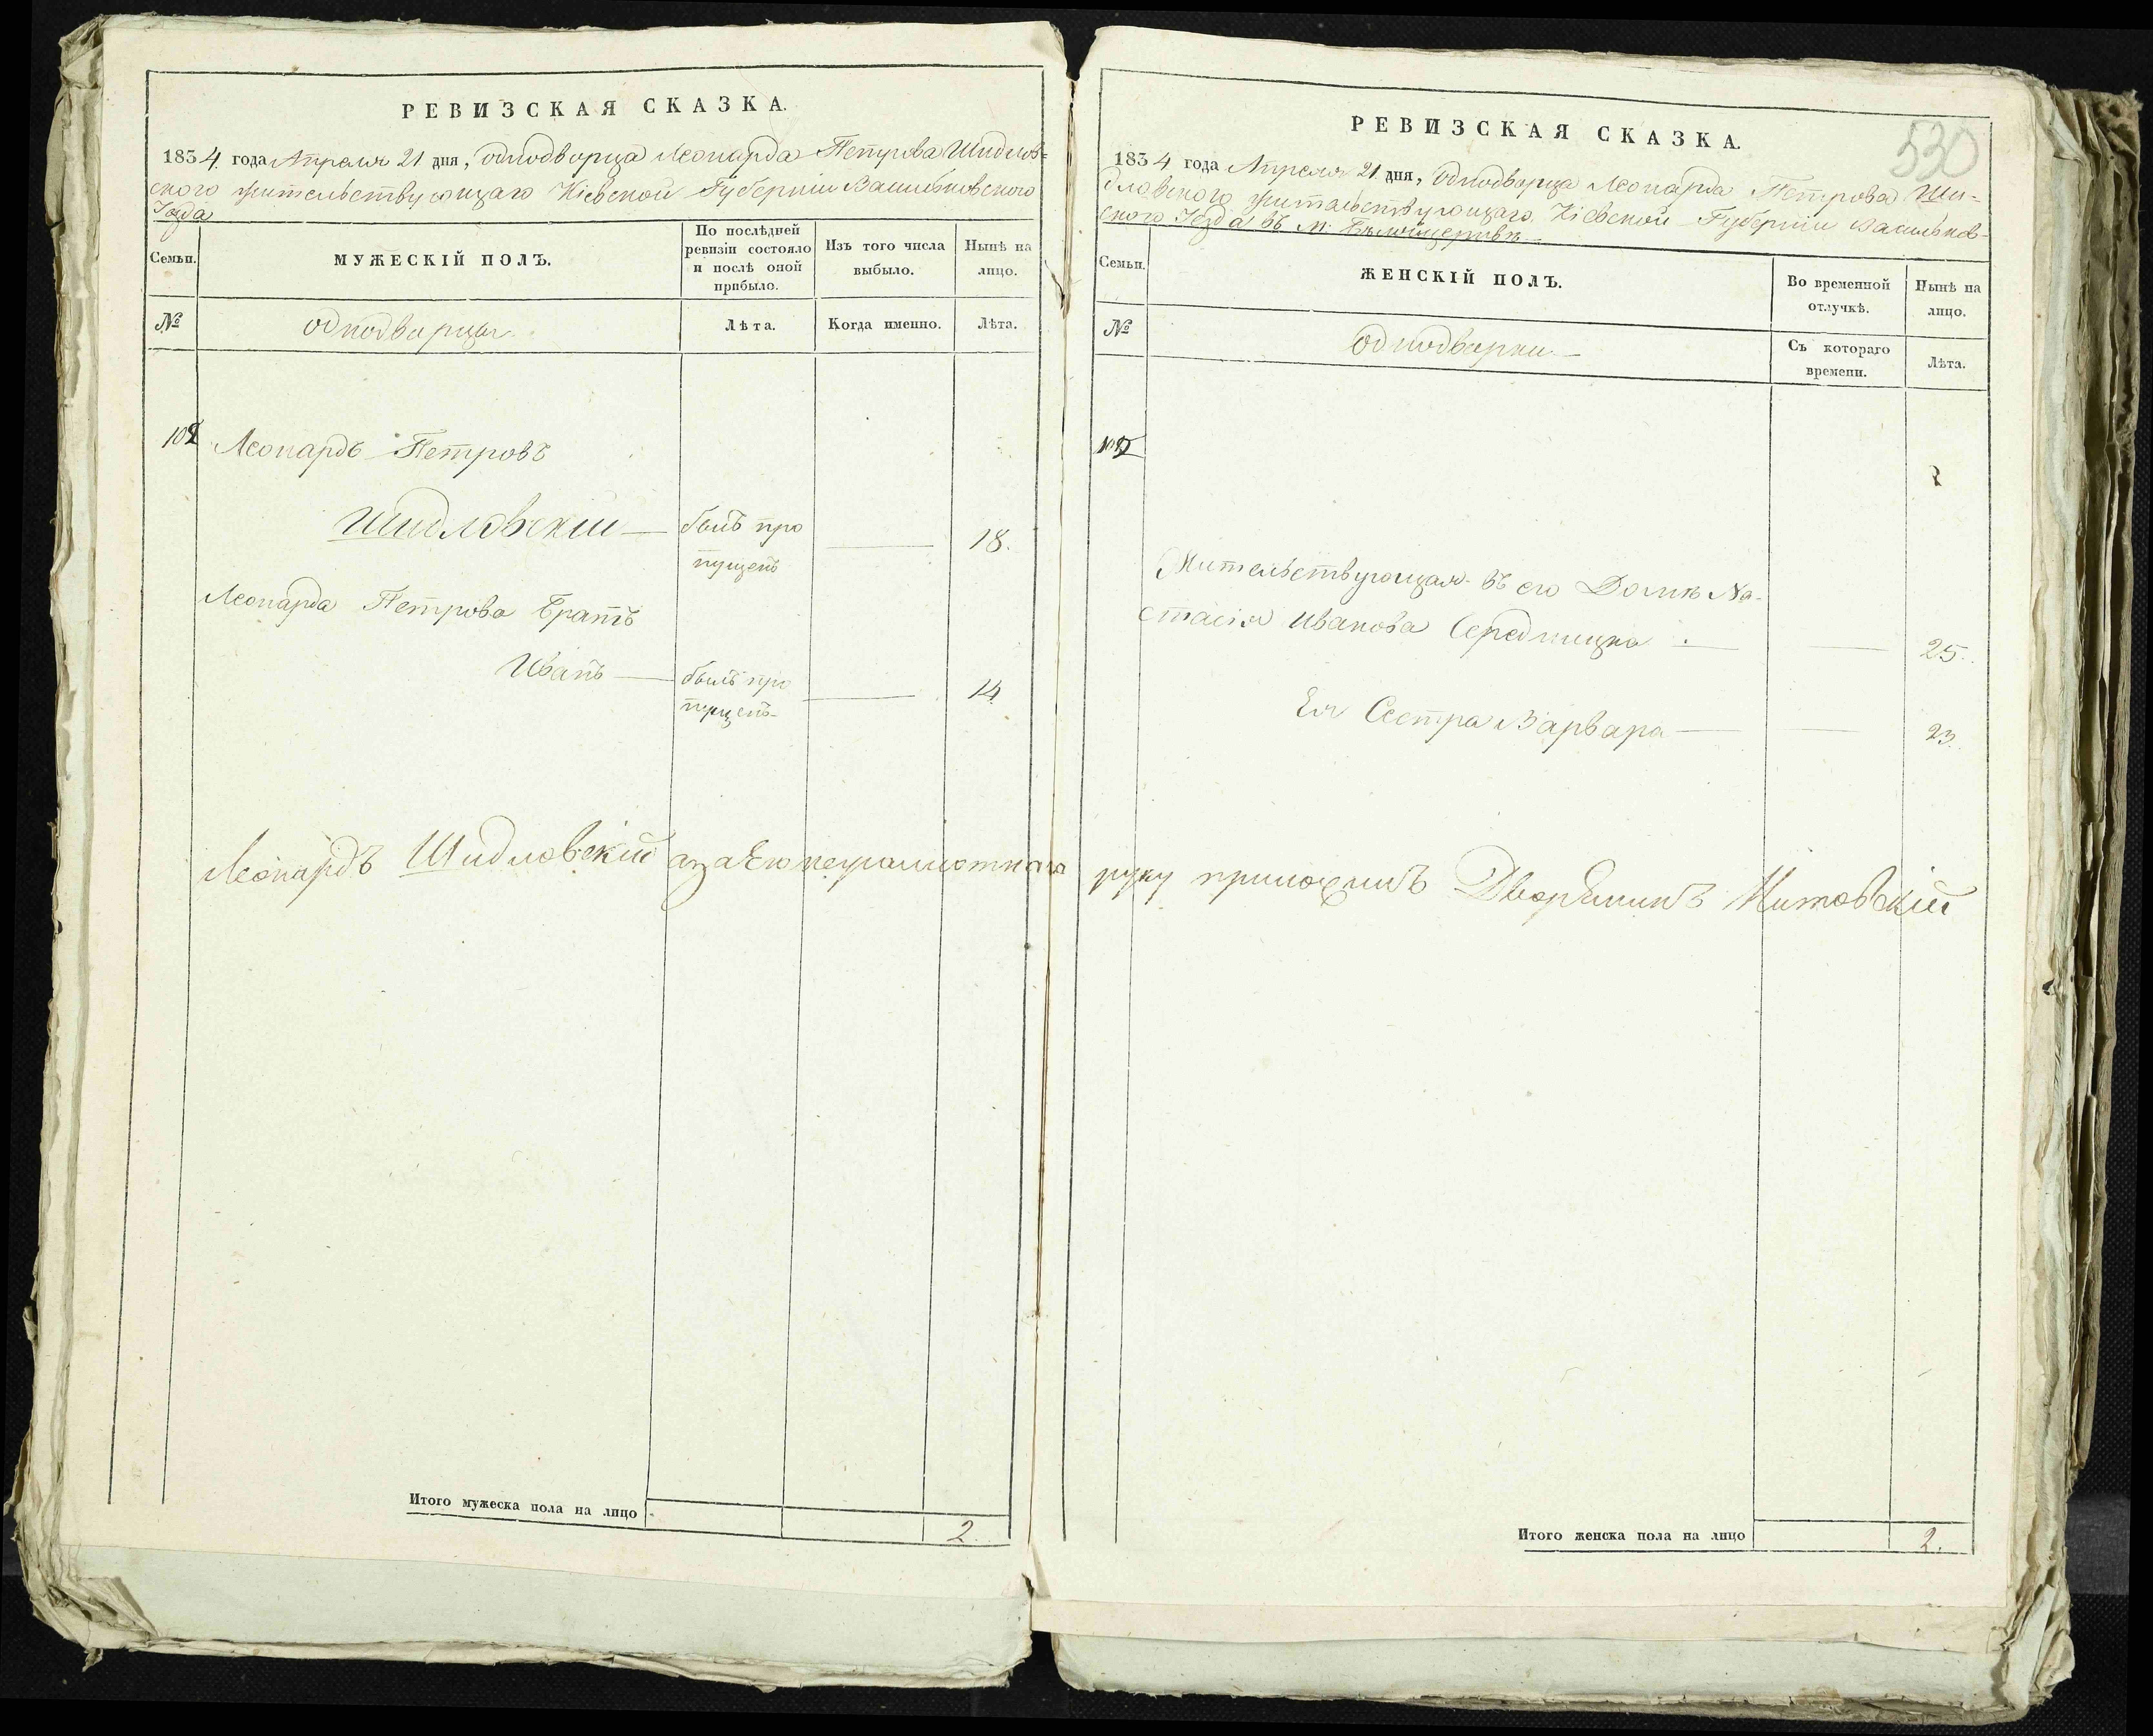 РЕВИЗСКАЯ СКАЗКА.
1834 года Апреля 21 дня, однодворца Леонарда Петрова Шидлов=
ского жительствующаго Кіевской Губерніи Васильковского
Уезда
Семьи.
МУЖЕСКІЙ ПОЛЪ.
По послѣдней
ревизіи состояло
и послѣ оной
прибыло.
Изъ того числа
выбыло.
Нынѣ на
лицо.
№
однодворцы
Лѣта.
Когда именно.
Лѣта.
Леонардъ Петровъ
Шидловскій — былъ про — 18.
пущенъ
Леонарда Петрова Братъ
Иванъ — былъ про — 14
пущенъ
Леонардъ Шидловскій а за Его неграмотнаго
Итого мужеска пола на лицо 2.
530
РЕВИЗСКАЯ СКАЗКА.
1834 года Апреля 21 дня, Однодворца Леонарда Петрова Ши=
дловского жительствующаго Кіевской Губерніи Васильков=
ского Уезда въ М: Бѣлойцерквѣ
Семьи.
ЖЕНСКІЙ ПОЛЪ.
Во временной
отлучкѣ.
Нынѣ на
лицо.
№
Однодворки
Съ котораго
времени.
Лѣта.
Жительствующая въ его Домѣ На-
стасія Иванова — — 25.
Ея Сестра Варвара — — 23.
руку приложилъ Дворянинъ
Итого женска пола на лицо 2.